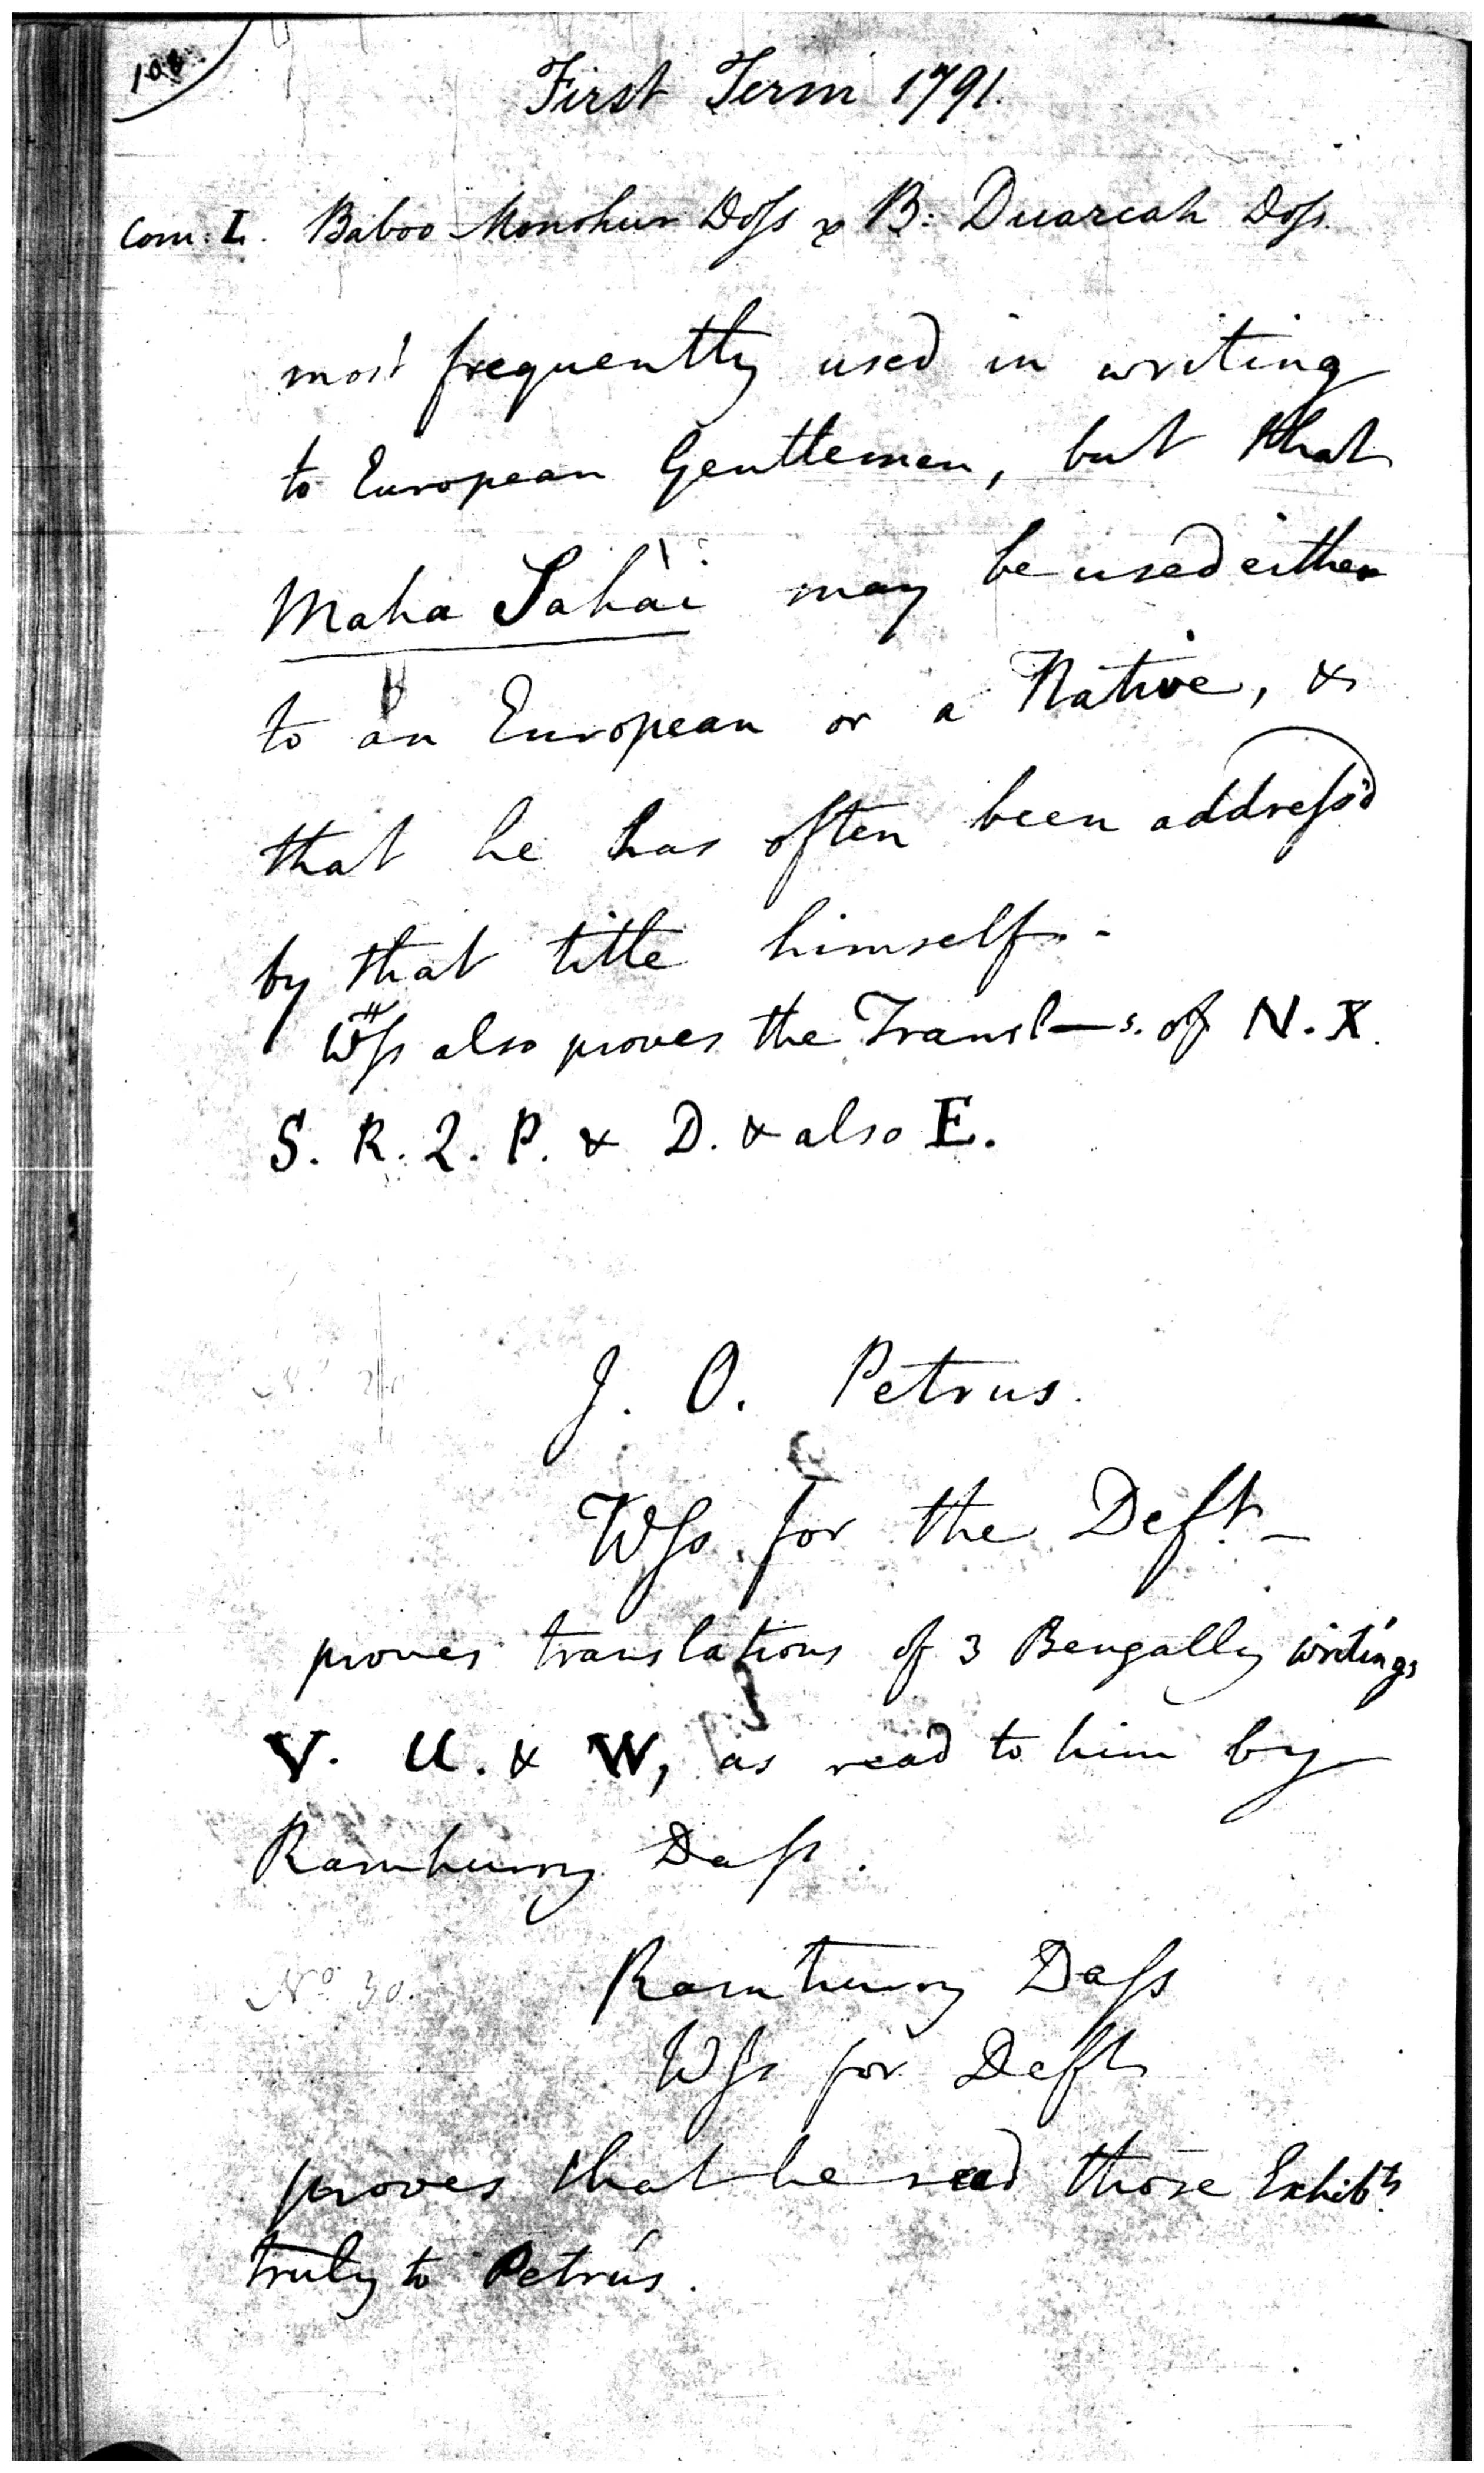 108.
First Term 1791.
Com: L. Baboo Monohur Doss v B: Duarcah Doss.
most frequently used in writing
to European Gentlemen, but that
Maha Sahai may be used either
to an European or a Native, &
that he has often been address'd
by that title himself.-
Wss also proves the Transl—s. of N. X.
S. R. Q. P. & D. & also E.
J. O. Petrus.
Wss. for the Deft.—
proves translations of 3 Bengally writings
V. U. & W, as read to him by
Ramhurry Dass.
No. 30. Ramhurry Dass
Wss for Deft
proves that he read those Exhibts
truly to Petrus.